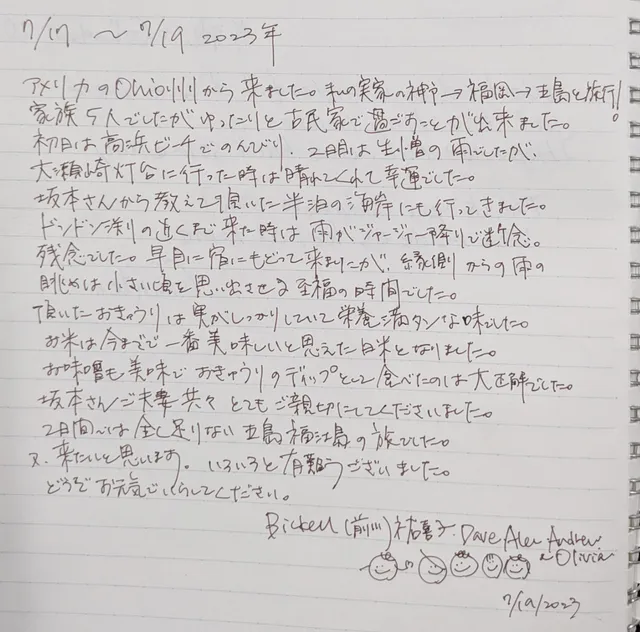 7/17 〜 7/19 2023年
アメリカのOhio州から来ました。私の実家の神戸→福岡→五島と旅行!
家族5人でしたがゆったりと古民家で過ごすことが出来ました。
初日は高浜ビーチでのんびり、2日目は生憎の雨でしたが、
大瀬崎灯台に行った時は晴れてくれて幸運でした。
坂本さんから教えて頂いた半泊の海岸にも行ってきました。
ドンドン渕の近くまで来た時は雨がジャージャー降りで断念。
残念でした。早目に宿にもどって来ましたが、縁側からの雨の
眺めは小さい頃を思い出させる至福の時間でした。
頂いたおきゅうりは実がしっかりしていて栄養満タンな味でした。
お米は今までで一番美味しいと思えた白米となりました。
お味噌も美味でおきゅうりのディップとして食べたのは大正解でした。
坂本さんご夫妻共々とてもご親切にしてくださいました。
2日間では全く足りない五島福江島の旅でした。
又、来たいと思います。いろいろと有難うございました。
どうぞお元気でいらしてください。
Bickell (前川) 祐喜子 Dave Alex Andrew
Olivia
7/19/2023